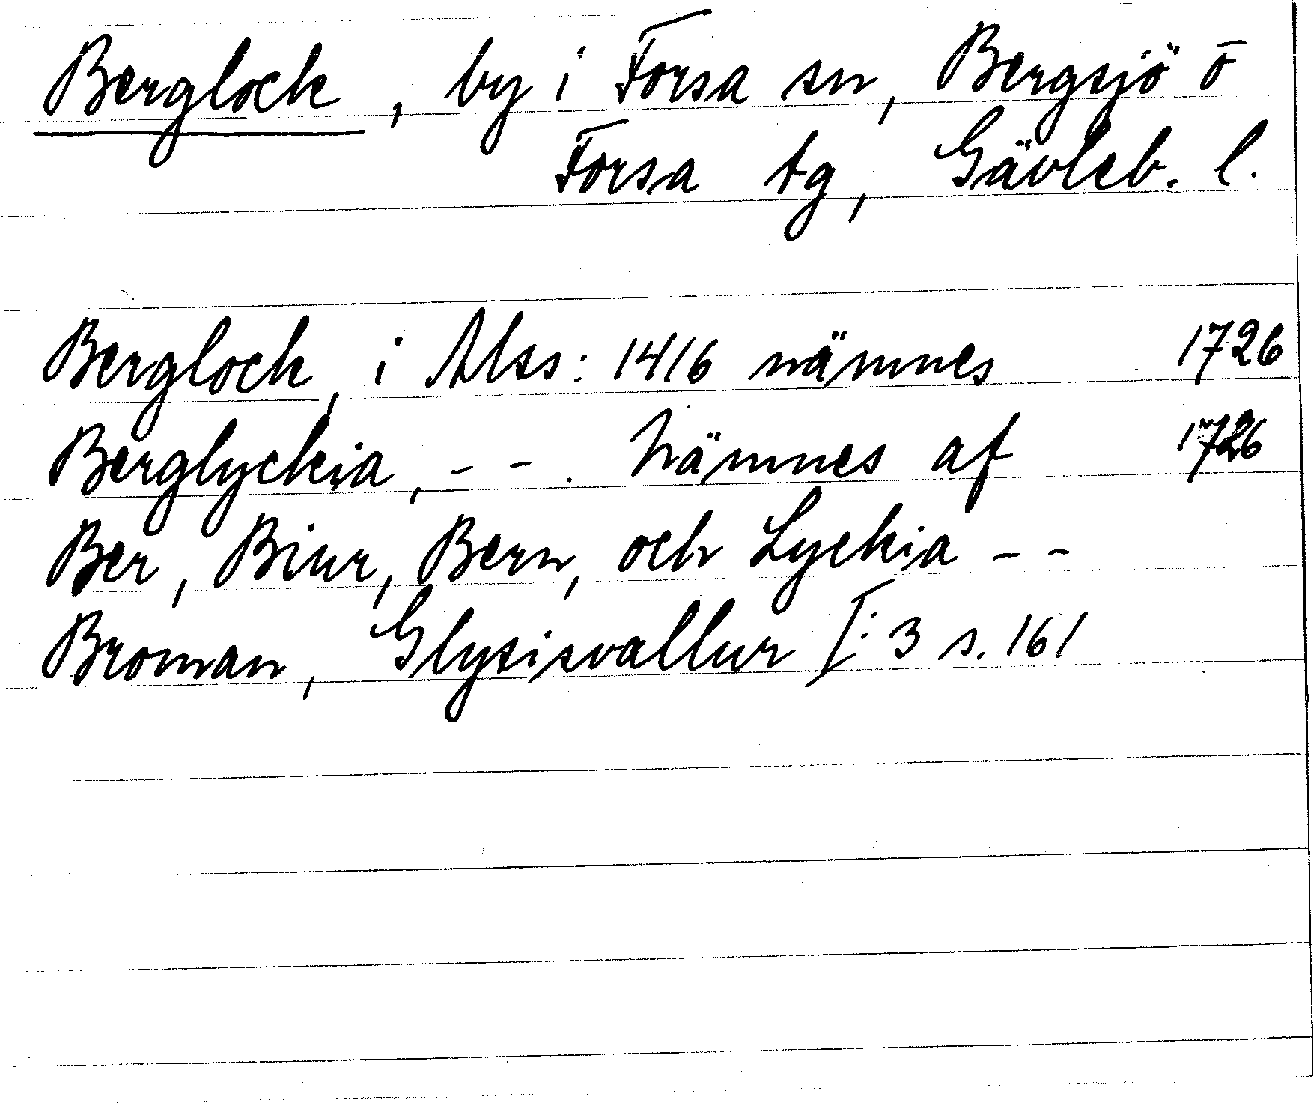 Berglock, by i Forsa sn, Bergsjö o
Forsa tg, Gävleb. l.
Berglock, i Mss: 1416 nämnes 1726
Berglyckia, - - . Nämnes af 1726
Ber, Biur, Bern, och Lyckia - -
Broman, Glysisvallur I:3 s. 161